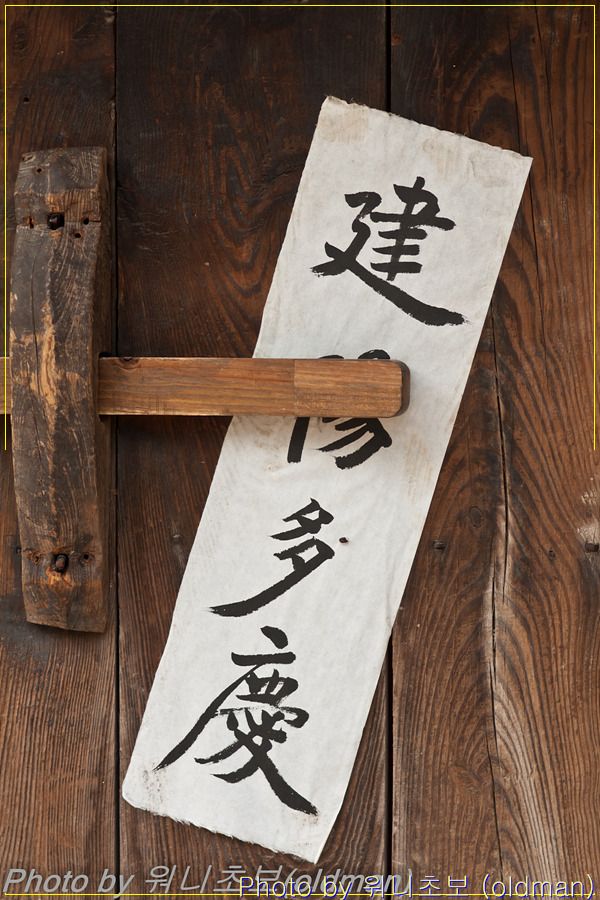 建陽多慶
Photo by 워니초보(oldman)
Photo by 워니초보 (oldman)